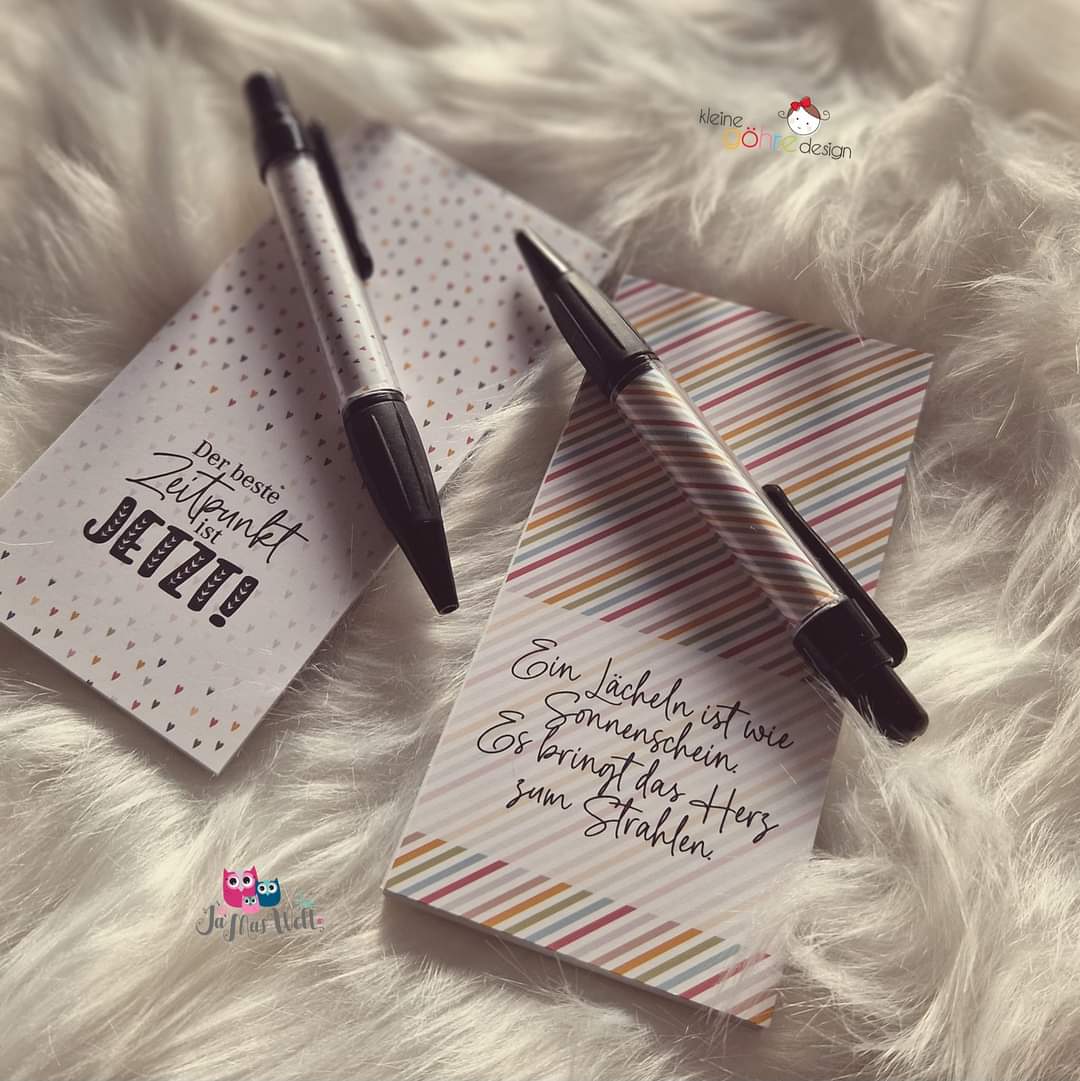 kleine
DÖHRE design
Der beste
Zeitpunkt
ist
JETZT!
Ein Lächeln ist wie
Sonnenschein.
Es bringt das Herz
zum Strahlen.
Ja'Mas Welt